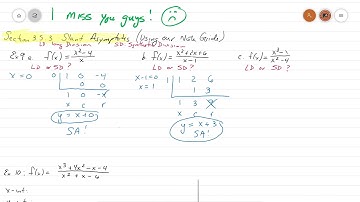 I miss you guys!
Section 3.5.3 Slant Asymptotes (Using our Note Guide)
LD Long Division SD Synthetic Division
Ex 9 a. f(x) = x²-4 / x b. f(x) = x²+2x+6 / x-1 c. f(x) = x²-1 / x²-4
LD or SD? LD or SD? LD or SD?
x=0 0 | 1 0 -4 x-1=0 1 | 1 2 6
0 0 x=1 1 3
1 0 -4 1 3 9
x c r x c r
y = x+0 y = x+3
SA! SA!
Ex. 10: f(x) = x³+4x²-x-4 / x²+x-6
x-int: